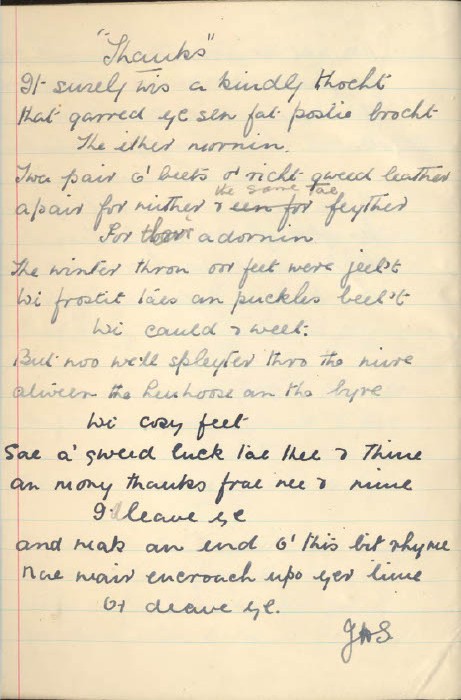 "Thanks"
It surely wis a kindly thocht
that garred ye sen fat postie brocht
The ither mornin.
Twa pair o' beets o' richt gweed leather
the same tae
a pair for mither & een for feyther
For their adornin
The winter thron oor feet were jeel't
Wi frostit taes an puckles beel't
Wi cauld & weet.
But noo we'll spleyter thro the mire
atween the henhoose an the byre
Wi cosy feet
Sae a' gweed luck tae thee & thine
an mony thanks frae me & mine
I'll leave ye
and mak an end o' this bit rhyme
Nae mair encroach upo yer time
Or deave ye.